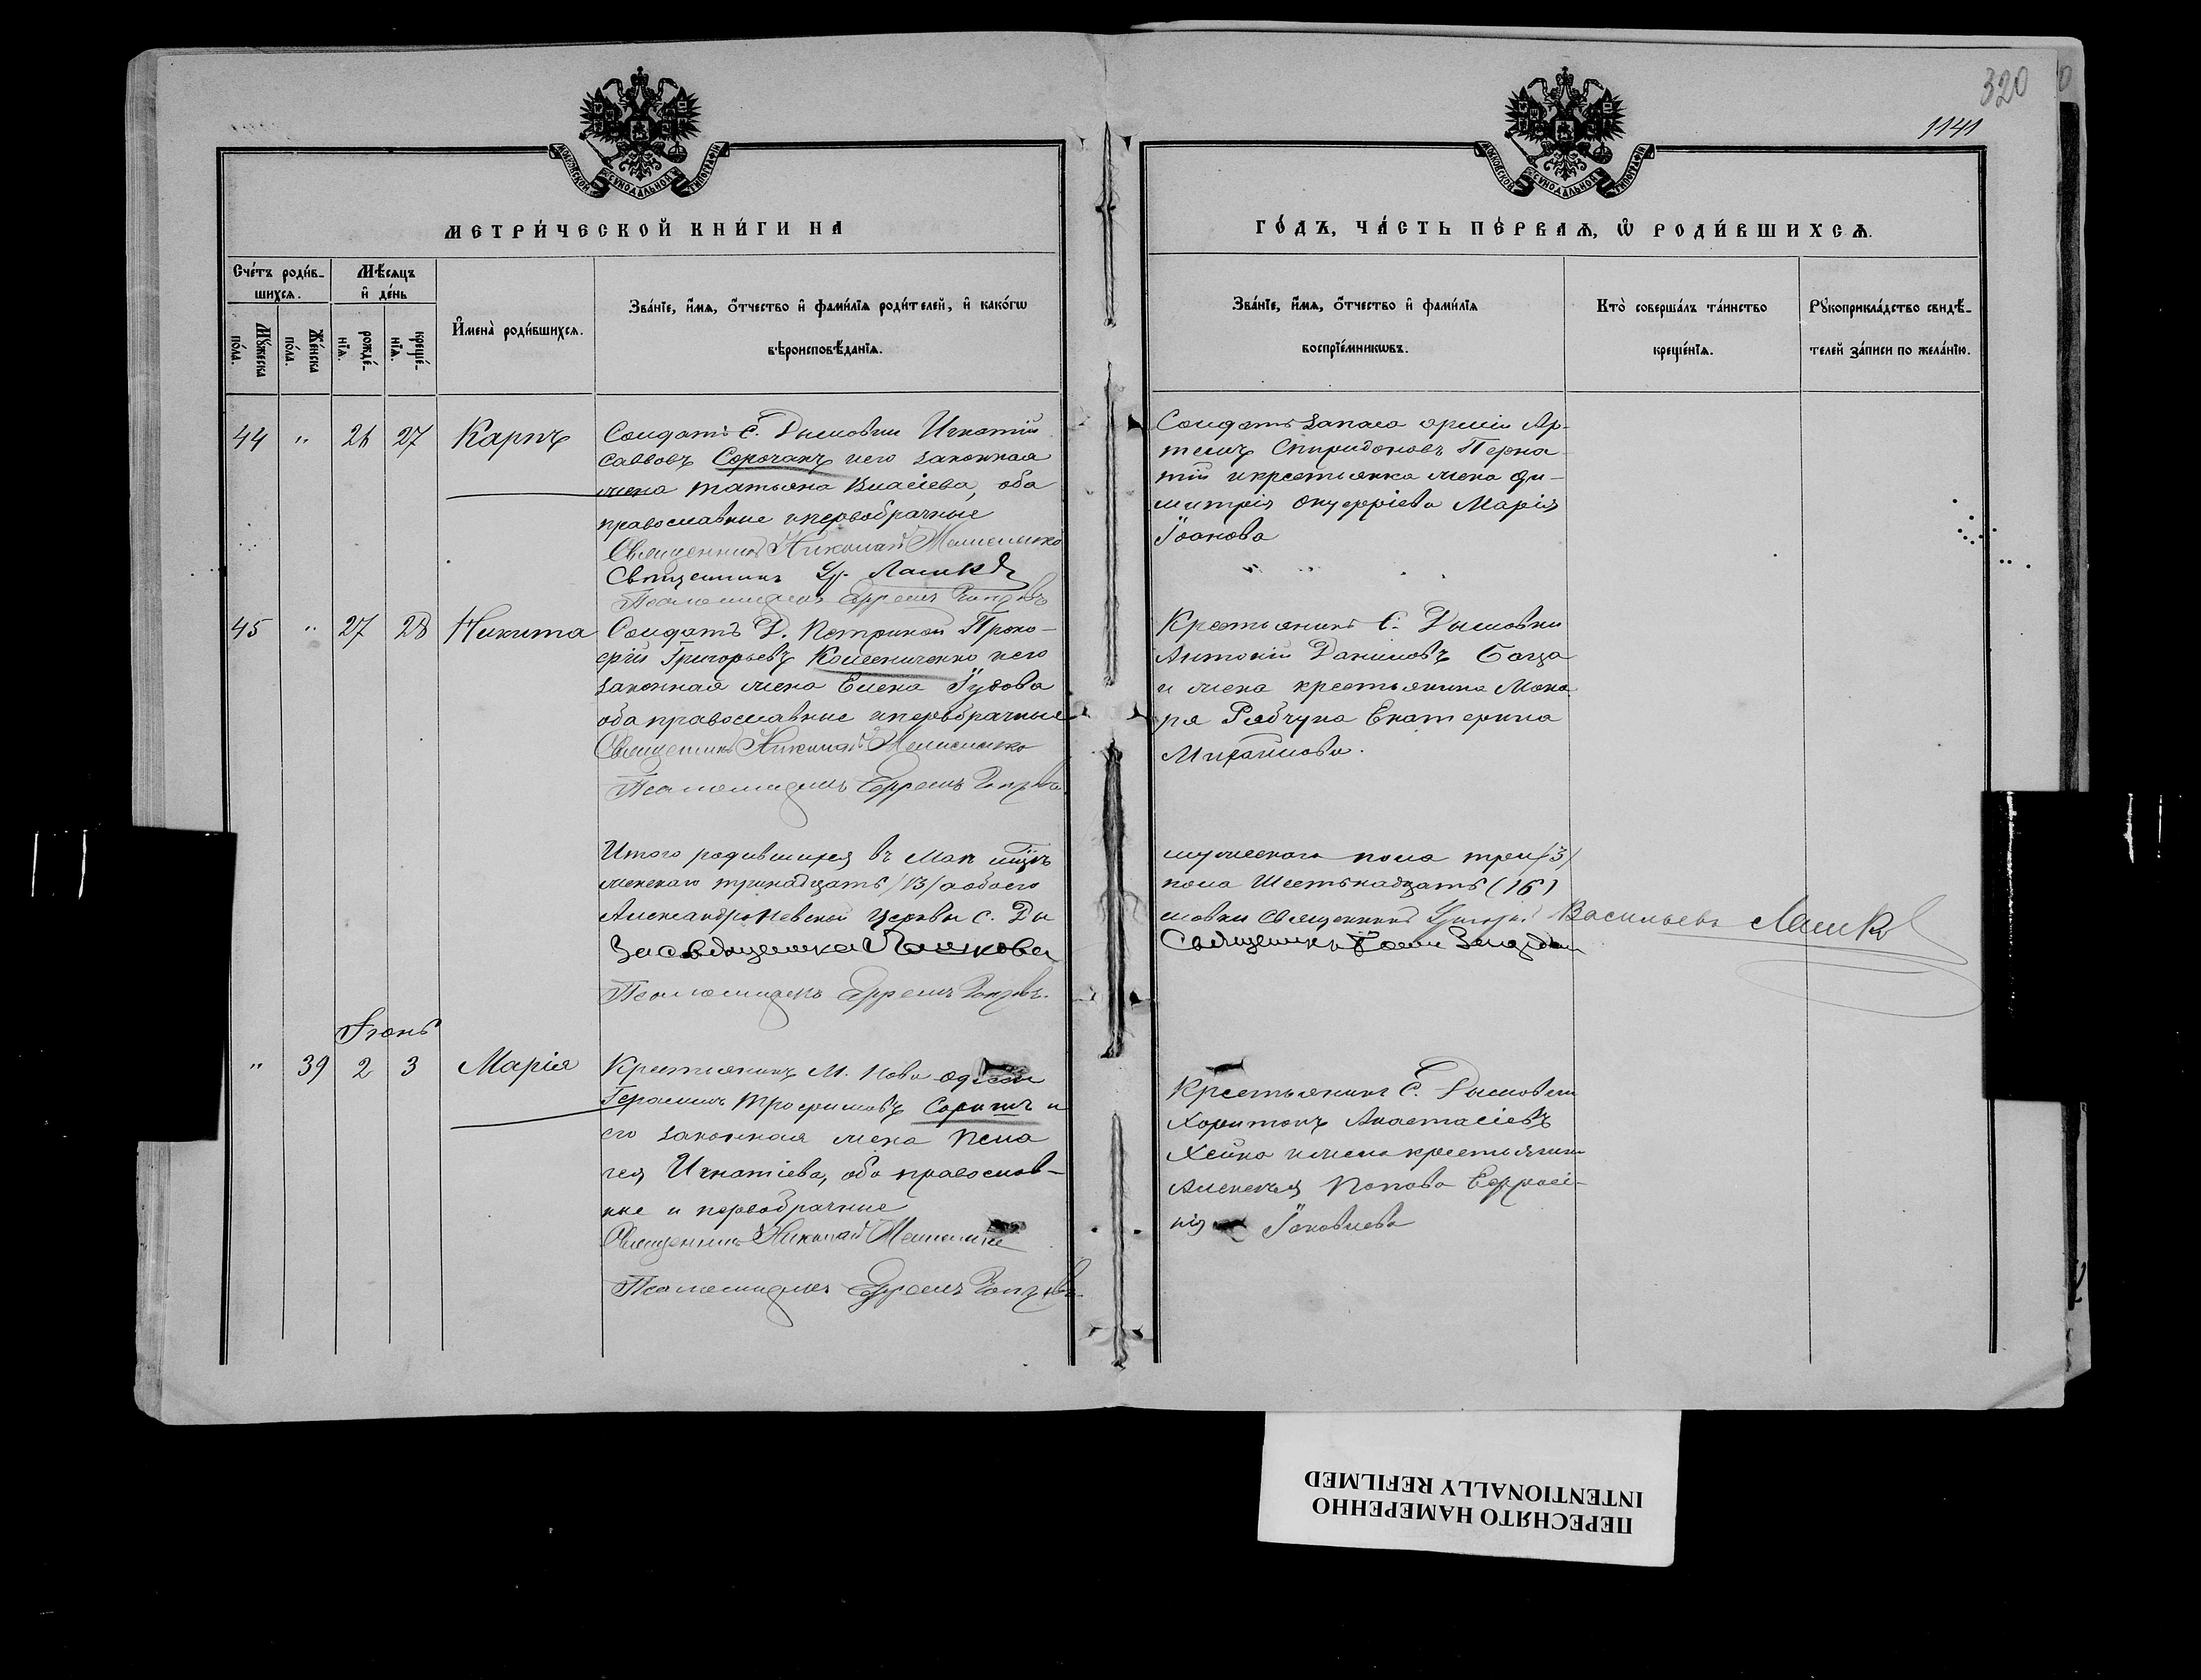 320
1141
МОСКОВСКОЙ СѴНОДАЛЬНОЙ ТИПОГРАФІИ
МОСКОВСКОЙ СѴНОДАЛЬНОЙ ТИПОГРАФІИ
МЕТРИ́ЧЕСКОЙ КНИ́ГИ НА
ГО́ДЪ, ЧА́СТЬ ПЕ́РВАѦ, Ѡ РОДИ́ВШИХСѦ.
Сче́тъ роди́в-
шихсѧ.
Мѣ́сѧцъ
и҆ де́нь
Мꙋ́жеска
по́ла.
Же́нска
по́ла.
рожде́-
нїѧ.
креще́-
нїѧ.
И҆мена̀ роди́вшихсѧ.
Зва́нїе, и҆́мѧ, о҆́тчество и҆ фами́лїѧ роди́телей, и҆ како́гѡ
вѣроисповѣ́данїѧ.
Зва́нїе, и҆́мѧ, о҆́тчество и҆ фами́лїѧ
воспрїе́мникѡвъ.
Кто̀ соверша́лъ та́инство
креще́нїѧ.
Рꙋкоприкла́дство свидѣ́-
телей за́писи по жела́нїю.
44 " 26 27 Карпъ
Солдатъ С. Дымовки Игнатій
Саввовъ Сорочанъ и его законная
жена Татьяна Власіева, оба
православные и первобрачные
Священникъ Николай
Священникъ Гр. Лашков
Псаломщикъ Ефремъ
Солдатъ запаса арміи Ар-
темъ Спиридоновъ Перна
тій и крестьянка жена Ди-
митрія Онуфріева Марія
Іоанова
45 " 27 28 Никита
Солдатъ Д. Петрикой Проко-
фій Григорьевъ Колесниченко и его
законная жена Елена Іудова
оба православные и первобрачные
Священникъ Николай
Псаломщикъ Ефремъ
Крестьянинъ С. Дымовки
Антоній Даниловъ Богza
и жена крестьянина Мака
ря Рябчука Екатерина
Михайлова.
Итого родившихся въ Маѣ мцѣ
женскаго тринадцать /13/ а обоего
Александро Невской Церкви с. Ды
За священника Лашкова
Псаломщикъ Ефремъ
мужескаго пола три /3/
пола шестьнадцать (16)
мовки Священникъ Григорій Васильевъ Лашков
Священникъ
Іюнь
" 39 2 3 Марія
Крестьянинъ М. Ново
Герасимъ Трофимовъ и
его законная жена Пела
гея Игнатіева, оба православ-
ные и первобрачные
Священникъ Николай
Псаломщикъ Ефремъ
Крестьянинъ С. Дымовки
Харитонъ Анастасіевъ
Хейко и жена крестьянина
Алексѣя Попова Ефросі-
нія Іаковлева
ПЕРЕСНЯТО НАМЕРЕННО
INTENTIONALLY REFILMED